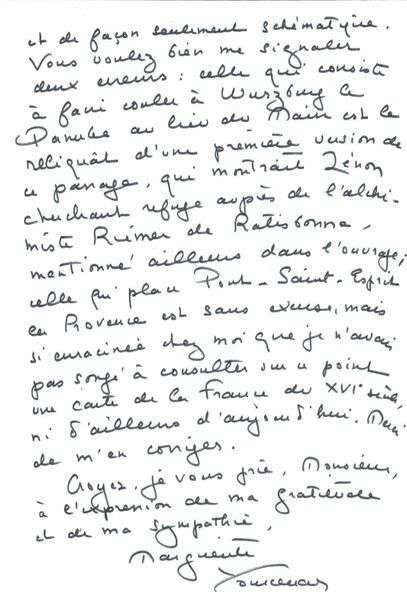 et de façon seulement schématique.
Vous voulez bien me signaler
deux erreurs : celle qui consiste
à faire couler à Wurzburg le
Danube au lieu du Main est le
reliquat d'une première version de
ce passage, qui montrait Zénon
cherchant refuge auprès de l'alchi-
miste Riemer de Ratisbonne,
mentionné ailleurs dans l'ouvrage;
celle qui place Pont-Saint-Esprit
en Provence est sans excuse, mais
si enracinée chez moi que je n'avais
pas songé à consulter sur ce point
une carte de la France du XVIe siècle,
ni d'ailleurs d'aujourd'hui. Merci
de m'en corriger.
Croyez, je vous prie, Monsieur,
à l'expression de ma gratitude
et de ma sympathie,
Marguerite
Yourcenar